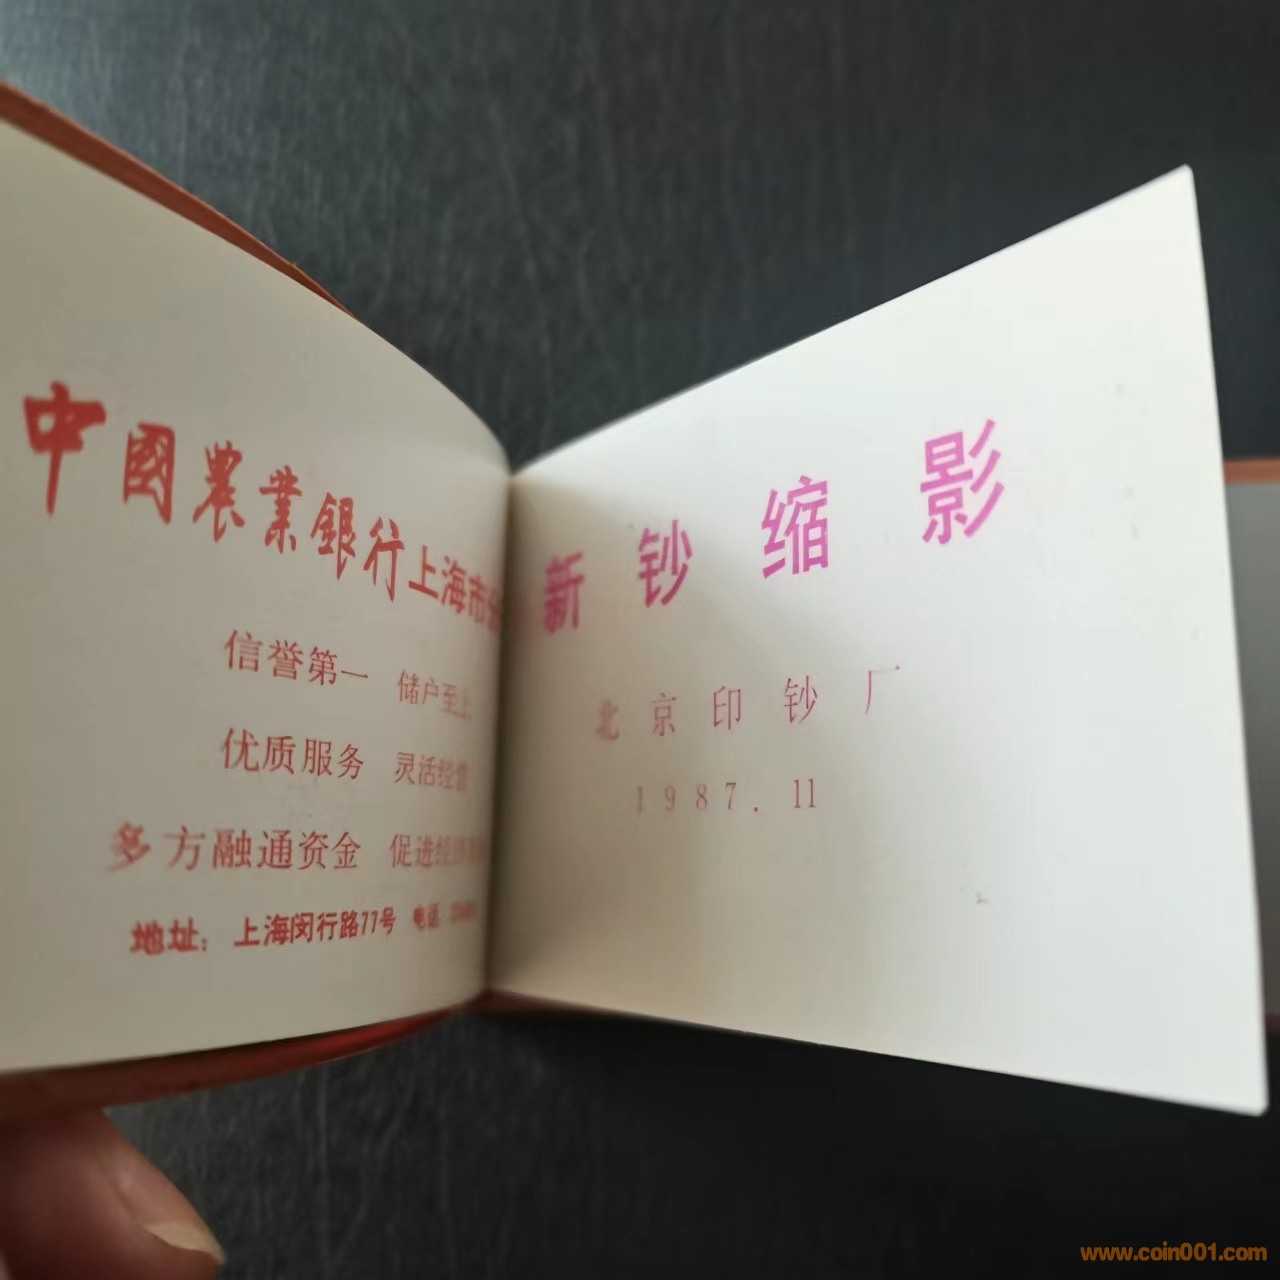 中國農業銀行上海市分
信誉第一 储户至上
优质服务 灵活经营
多方融通资金 促进经济
地址：上海闵行路77号 电话
新钞缩影
北京印钞厂
1987.11
www.coin001.com